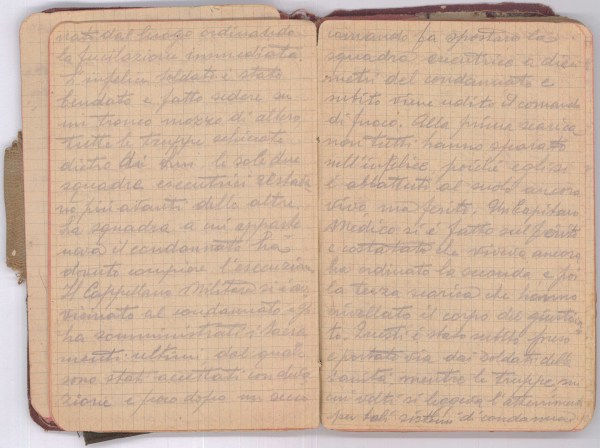 nati dal luogo ordinando
la fucilazione immediata.
L'infelice soldato è stato
bendato e fatto sedere su
un tronco mozzo di albero
tutte le truppe schierate
dietro di lui le sole due
squadre esecutrici
più avanti delle altre.
La squadra a cui apparte
neva il condannato ha
dovuto compiere l'esecuzione
Il Cappellano Militare si è av
vicinato al condannato e gli
ha somministrato i Sacra
menti ultimi, dal quale
sono stati accettati con devo
zione e poco dopo un secco
comando fa spostare la
squadra esecutrice a dieci
metri del condannato e
subito viene udito il comando
di fuoco. Alla prima scarica
non tutti hanno sparato
nell'infelice poichè egli si
è abbattuto al suolo ancora
vivo ma ferito. Un Capitano
Medico si è fatto sul ferito
e constatato che viveva ancora
ha ordinato la seconda e poi
la terza scarica che hanno
crivellato il corpo del giustizia
to. Questi è stato subito preso
e portato via dai soldati della
sanità mentre le truppe, su
cui volti si leggeva l'atterrimento
per tali sistemi di condanna